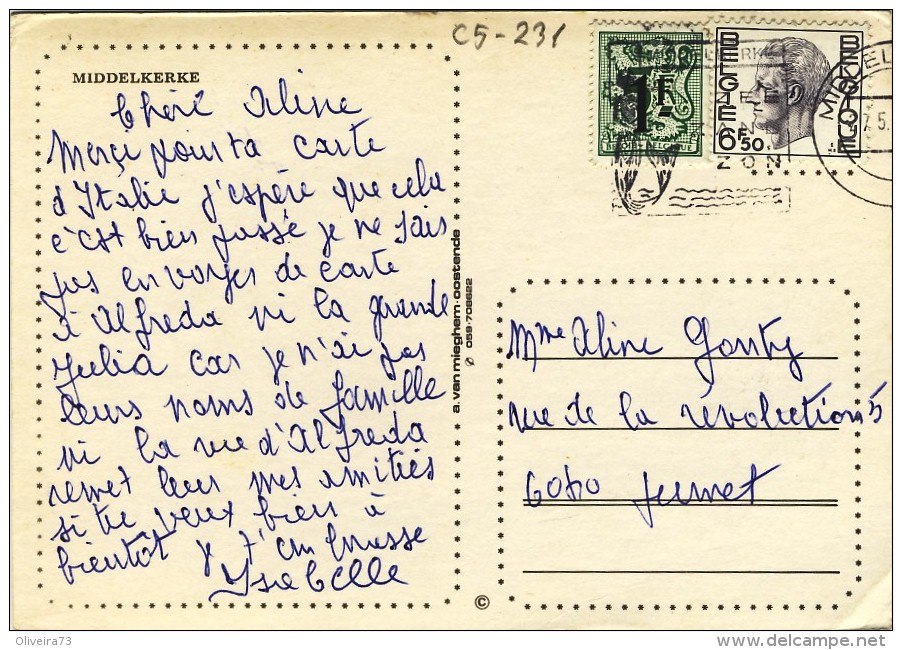 C5-231
MIDDELKERKE
Chère Aline
Merci pour ta carte
d'Italie j'espère que cela
c'est bien passé je ne sais
pas envoyes de carte
à Alfreda ni la grande
Julia car je n'ai pas
leurs noms de famille
ni la rue d'Alfreda
remet leur mes amitiés
si tu veux bien à
bientôt je t'embrasse
Isabelle
a. van mieghem-oostende
059-708622
©
BELGIE BELGIQUE
1F
BELGIË-BELGIQUE
6F50
ZEE
ZON
Mme Aline Gonty
rue de la révolution 5
6060 Jumet
Oliveira73
www.delcampe.net